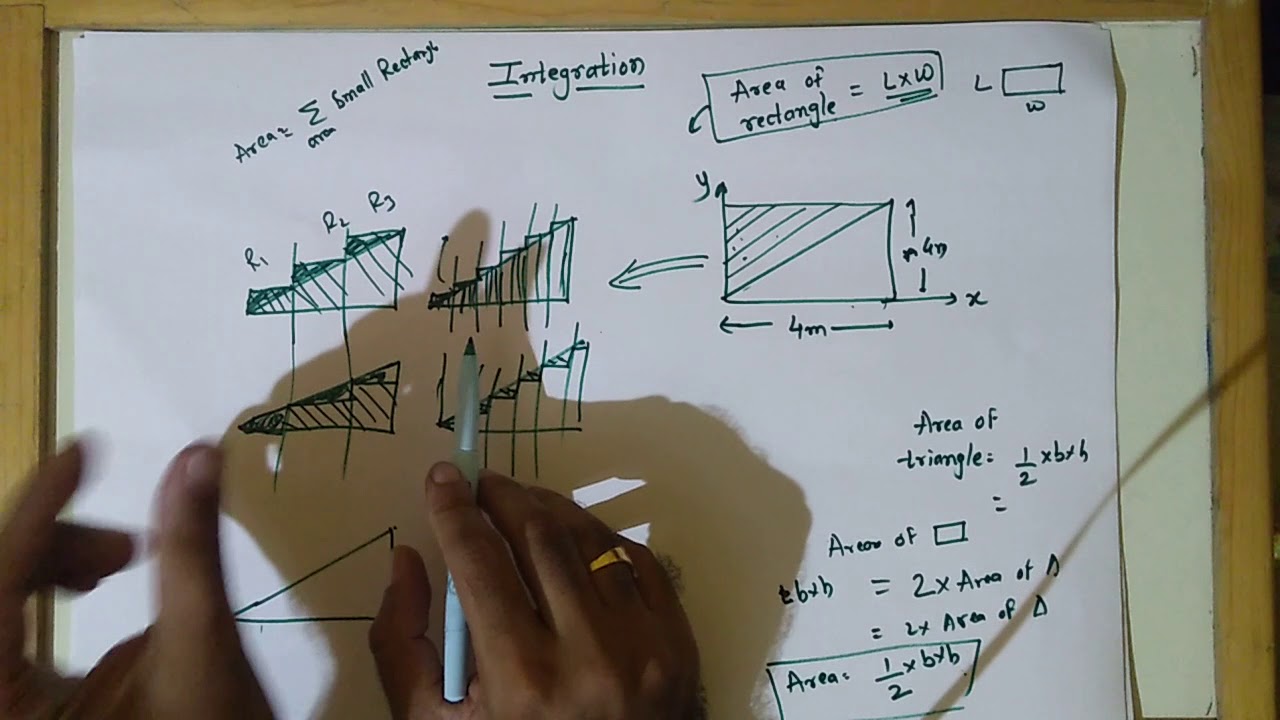 Integration
Area = Σ Small Rectangle
area
Area of
rectangle = L×W
L
W
R1
R2
R3
y
4m
x
4m
Area of
triangle = 1/2 ×b×h
=
Area of □
b×h = 2× Area of Δ
= 2× Area of Δ
Area = 1/2 ×b×h